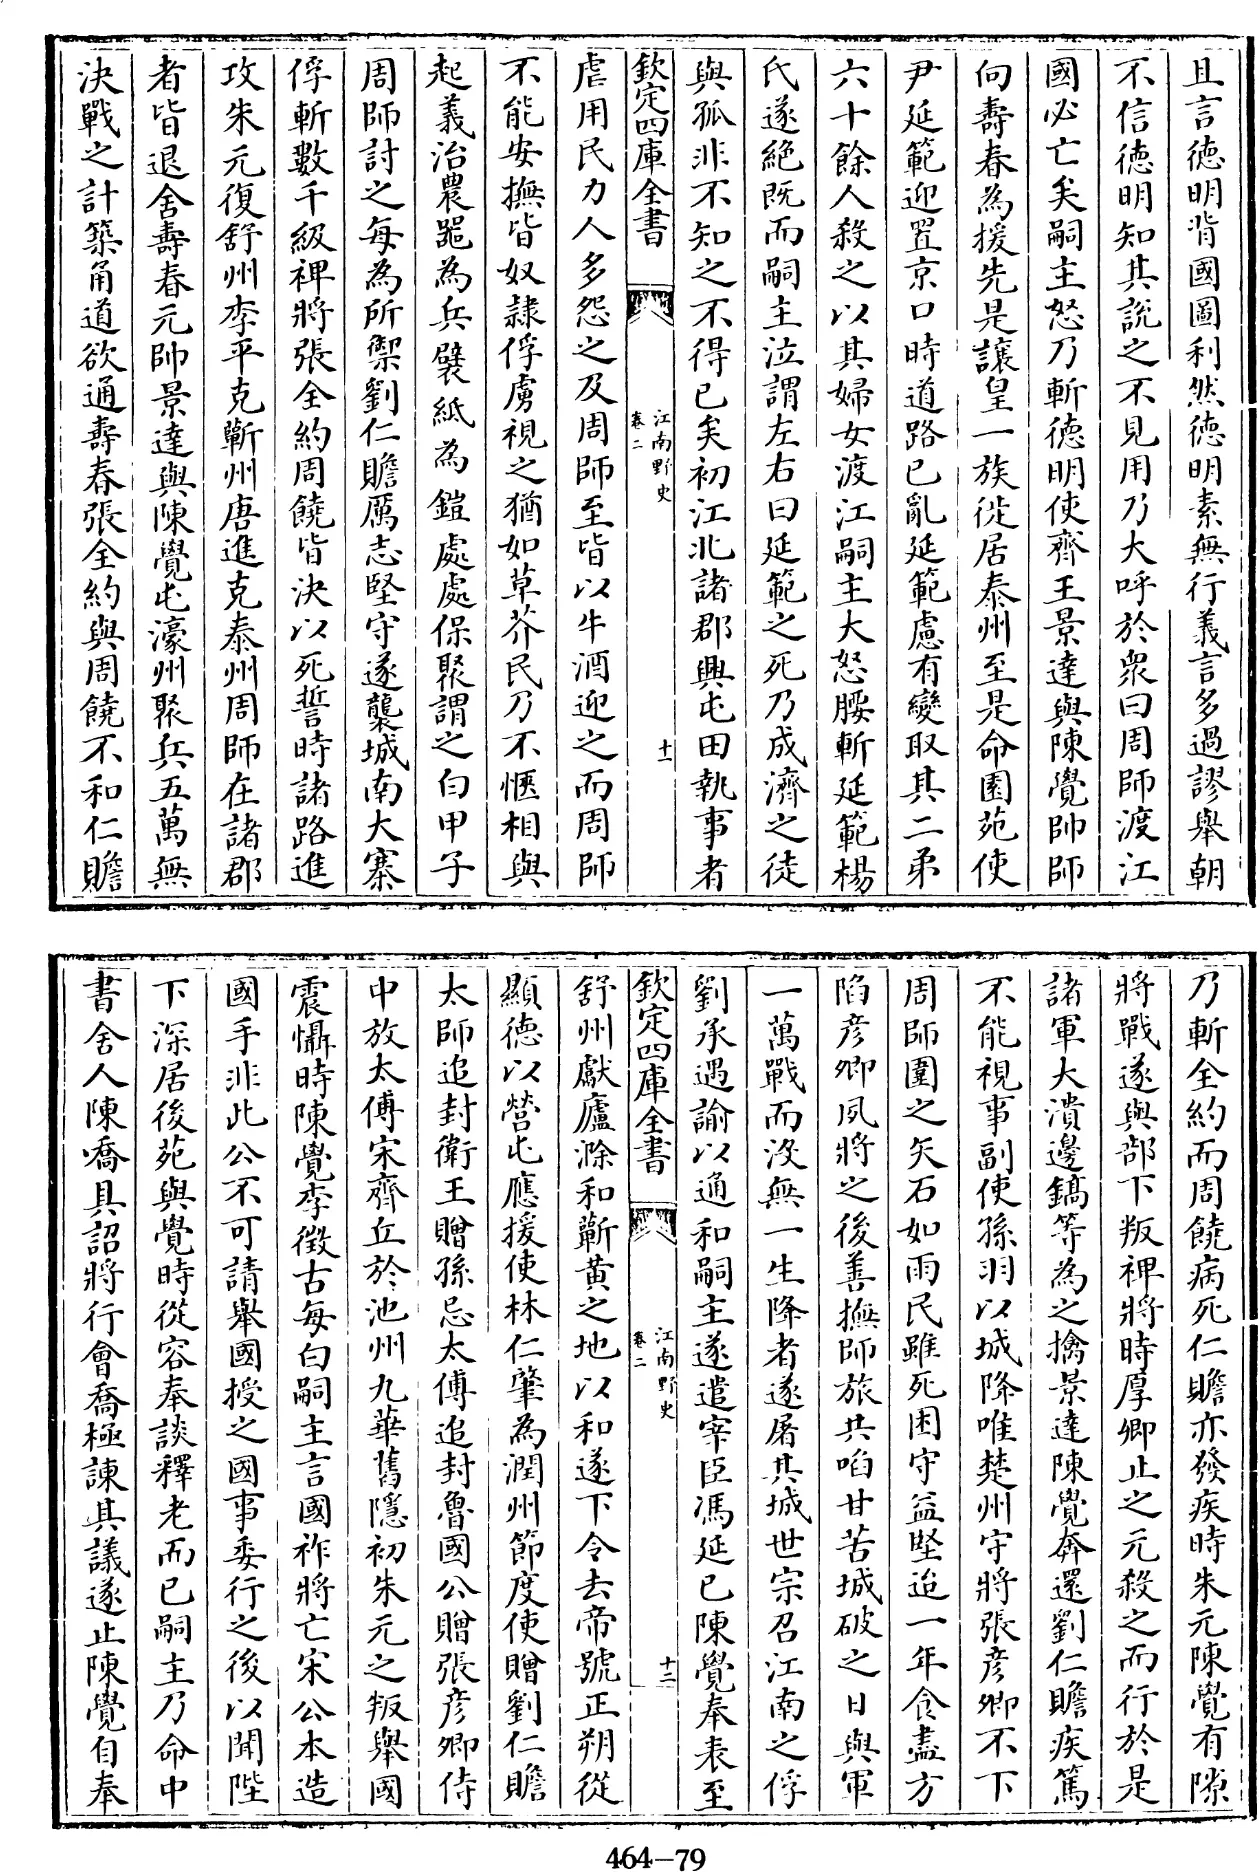 且言徳明背國圖利然徳明素無行義言多過謬舉朝
不信徳明知其說之不見用乃大呼於衆曰周師渡江
國必亡矣嗣主怒乃斬徳明使齊王景達與陳覺帥師
向壽春為援先是讓皇一族徙居泰州至是命園苑使
尹延範迎置京口時道路已亂延範慮有變取其二弟
六十餘人殺之以其婦女渡江嗣主大怒腰斬延範楊
氏遂絶既而嗣主泣謂左右曰延範之死乃成濟之徒
與孤非不知之不得已矣初江北諸郡興屯田執事者
欽定四庫全書
江南野史
卷二
十一
虐用民力人多怨之及周師至皆以牛酒迎之而周師
不能安撫皆奴隸俘虜視之猶如草芥民乃不愜相與
起義治農噐為兵襞紙為鎧處處保聚謂之白甲子
周師討之每為所禦劉仁贍厲志堅守遂襲城南大寨
俘斬數千級裨將張全約周饒皆決以死誓時諸路進
攻朱元復舒州李平克蘄州唐進克泰州周師在諸郡
者皆退舍壽春元帥景達與陳覺屯濠州聚兵五萬無
決戰之計築甬道欲通壽春張全約與周饒不和仁贍
乃斬全約而周饒病死仁贍亦發疾時朱元陳覺有隙
將戰遂與部下叛裨將時厚卿止之元殺之而行於是
諸軍大潰邊鎬等為之擒景達陳覺奔還劉仁贍疾篤
不能視事副使孫羽以城降唯楚州守將張彦卿不下
周師圍之矢石如雨民雖死困守益堅迨一年食盡方
陷彦卿夙將之後善撫師旅共啗甘苦城破之日與軍
一萬戰而沒無一生降者遂屠其城世宗召江南之俘
劉承遇諭以通和嗣主遂遣宰臣馮延巳陳覺奉表至
欽定四庫全書
江南野史
卷二
十二
舒州獻廬滁和蘄黄之地以和遂下令去帝號正朔從
顯德以營屯應援使林仁肇為潤州節度使贈劉仁贍
太師追封衛王贈孫忌太傅追封魯國公贈張彦卿侍
中放太傅宋齊丘於池州九華舊隱初朱元之叛舉國
震懾時陳覺李徵古每白嗣主言國祚將亡宋公本造
國手非此公不可請舉國授之國事委行之後以聞陛
下深居後苑與覺時從容奉談釋老而已嗣主乃命中
書舍人陳喬具詔將行會喬極諫其議遂止陳覺自奉
464-79